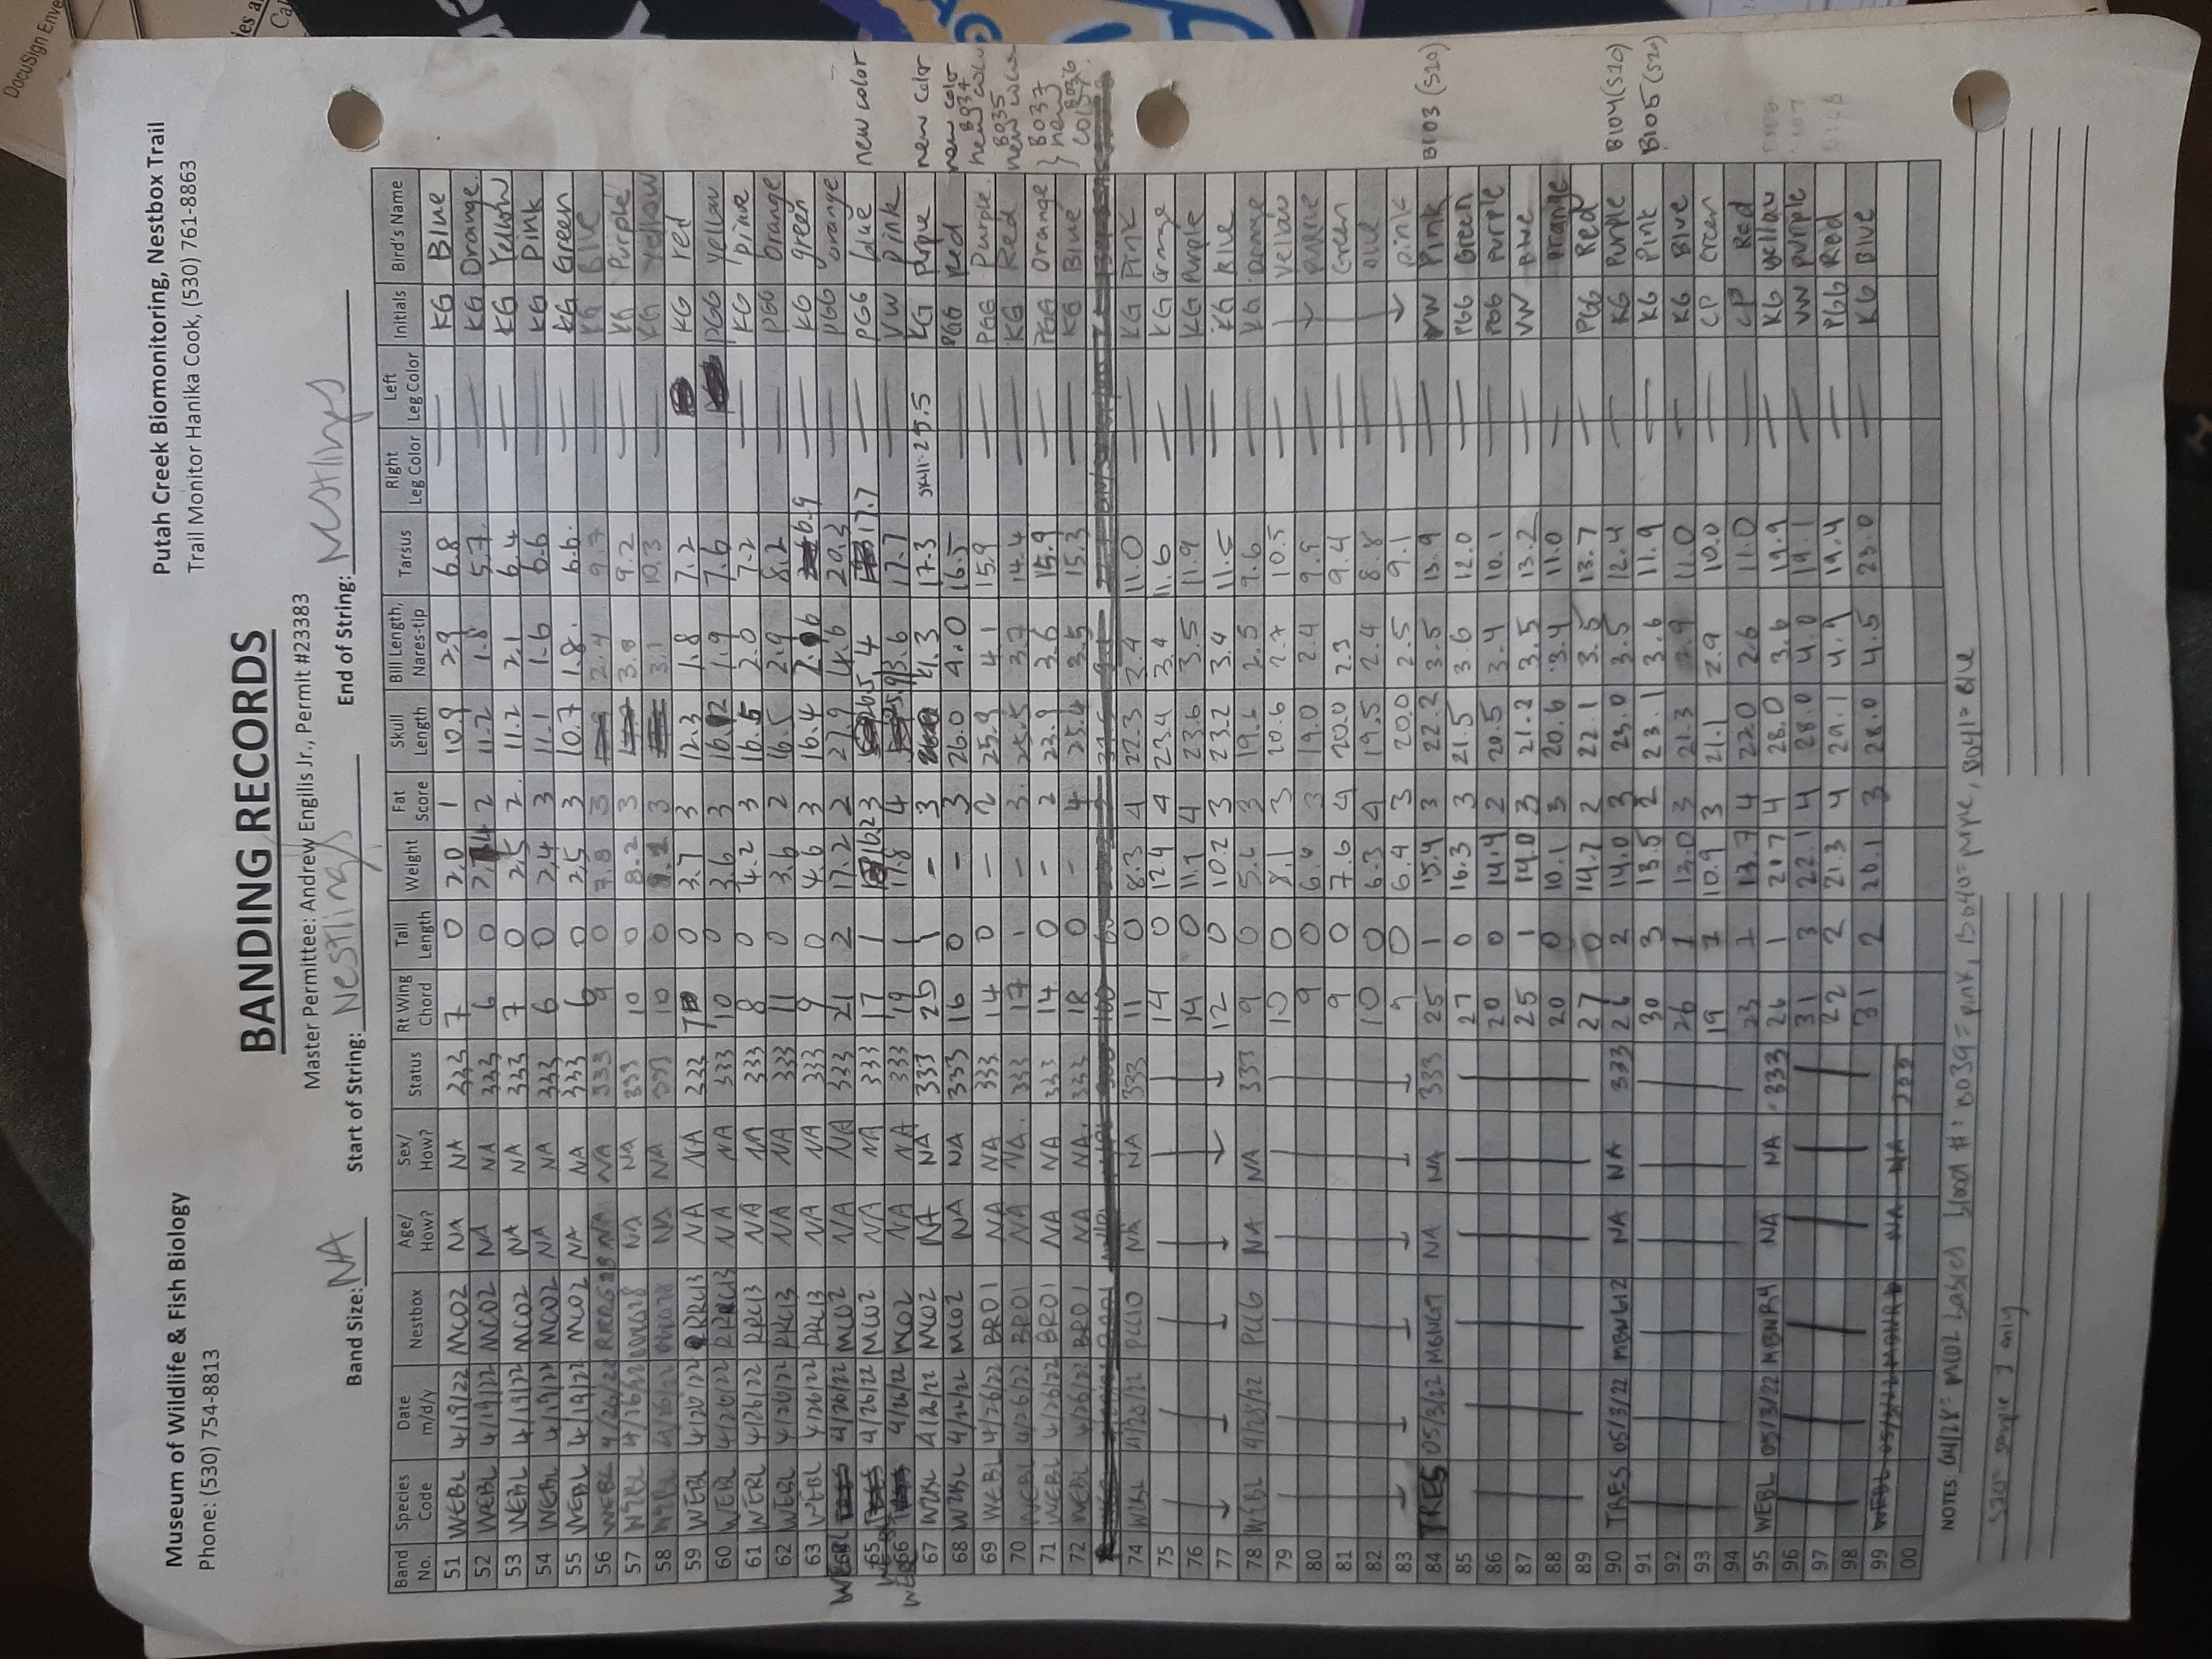 DocuSign Enve
Museum of Wildlife & Fish Biology
Phone: (530) 754-8813
Putah Creek Biomonitoring, Nestbox Trail
Trail Monitor Hanika Cook, (530) 761-8863
BANDING RECORDS
Master Permittee: Andrew Engilis Jr., Permit #23383
Band Size: NA Start of String: Nestlings End of String: Nestlings
Band No. Species Code Date m/d/y Nestbox Age/ How? Sex/ How? Status Rt Wing Chord Tail Length Weight Fat Score Skull Length Bill Length, Nares-tip Tarsus Right Leg Color Left Leg Color Initials Bird's Name
51 WEBL 4/19/22 MC02 NA NA 333 7 0 2.0 1 10.9 2.9 6.8 — KG Blue
52 WEBL 4/19/22 MC02 NA NA 333 6 0 2 11.2 1.8 5.7 — KG Orange
53 WEBL 4/19/22 MC02 NA NA 333 7 0 2.5 2 11.2 2.1 6.4 — KG Yellow
54 WEBL 4/19/22 MC02 NA NA 333 6 0 2.4 3 11.1 1.6 6.6 — KG Pink
55 WEBL 4/19/22 MC02 NA NA 333 6 0 2.5 3 10.7 1.8 6.6 — KG Green
56 WEBL 4/26/22 NA NA 333 9 0 7.8 3 2.4 9.7 — KG Blue
57 WEBL 4/26/22 NA NA 333 10 0 8.2 3 3.8 9.2 — KG Purple
58 WEBL 4/26/22 NA NA 333 10 0 3 3.1 10.3 — KG yellow
59 WEBL 4/26/22 RRC13 NA NA 333 7 0 3.7 3 12.3 1.8 7.2 — KG red
60 WEBL 4/26/22 RRC13 NA NA 333 10 0 3.6 3 16.2 1.9 7.6 — PGG yellow
61 WEBL 4/26/22 RRC13 NA NA 333 8 0 4.2 3 16.5 2.0 7.2 — KG pink
62 WEBL 4/26/22 RRC13 NA NA 333 11 0 3.6 2 16.5 2.9 8.2 — PGG orange
63 WEBL 4/26/22 RRC13 NA NA 333 9 0 4.6 3 16.4 6.9 — KG green
WEBL 4/26/22 MC02 NA NA 333 21 2 17.2 2 27.9 4.6 20.3 — PGG orange
65 WEBL 4/26/22 MC02 NA NA 333 17 1 16.2 3 26.5 4 17.7 — PGG blue new color
66 WEBL 4/26/22 MC02 NA NA 333 19 1 17.8 4 25.9 3.6 17.7 — VW Pink
67 WEBL 4/26/22 MC02 NA NA 333 20 1 - 3 4.3 17.3 skull-25.5 KG Purple new color
68 WEBL 4/26/22 MC02 NA NA 333 16 0 - 3 26.0 4.0 16.5 — PGG Red new color
69 WEBL 4/26/22 BR01 NA NA 333 14 0 - 2 25.9 4.1 15.9 — PGG Purple B034 new color
70 WEBL 4/26/22 BR01 NA NA 333 17 1 - 3 25.5 3.7 14.4 — KG Red B035 new color
71 WEBL 4/26/22 BR01 NA NA 333 14 0 - 2 23.9 3.6 15.9 — PGG Orange } B037 new
72 WEBL 4/26/22 BR01 NA NA 333 18 0 - 4 25.4 3.5 15.3 — KG Blue B036 color
74 WEBL 4/28/22 PCC10 NA NA 333 11 0 8.3 4 22.3 3.4 11.0 — KG Pink
75 14 0 12.4 4 23.4 3.4 11.6 — KG orange
76 14 0 11.9 4 23.6 3.5 11.9 — KG Purple
77 12 0 10.2 3 23.2 3.4 11.5 — KG Blue
78 WEBL 4/28/22 PCC6 NA NA 333 9 0 5.6 3 19.6 2.5 9.6 — KG orange
79 10 0 8.1 3 20.6 2.7 10.5 — Yellow
80 9 0 3 19.0 2.4 9.9 — purple
81 9 0 7.6 4 20.0 2.3 9.4 — Green
82 10 0 6.3 4 19.5 2.4 8.8 — blue
83 9 0 6.4 3 20.0 2.5 9.1 — pink
84 TRES 05/3/22 MBNG9 NA NA 333 25 1 15.4 3 22.2 3.5 13.9 — VW Pink B103 (S10)
85 27 0 16.3 3 21.5 3.6 12.0 — PGG Green
86 20 0 14.4 2 20.5 3.4 10.1 — PGG Purple
87 25 1 14.0 3 21.2 3.5 13.2 — VW Blue
88 20 0 10.1 3 20.6 3.4 11.0 — orange
89 27 0 14.7 2 22.1 3.5 13.7 — PGG Red
90 TRES 05/3/22 MBNG12 NA NA 333 26 2 14.0 3 23.0 3.5 12.4 — KG Purple B104 (S10)
91 30 3 13.5 2 23.1 3.6 11.9 — KG Pink B105 (S20)
92 26 1 13.0 3 21.3 2.9 11.0 — KG Blue
93 19 1 10.9 3 21.1 2.9 10.0 — CP Green
94 23 1 13.7 4 22.0 2.6 11.0 — CP Red
95 WEBL 05/3/22 MBNR4 NA NA 333 26 1 21.7 4 28.0 3.6 19.9 — KG yellow
96 31 3 22.1 4 28.0 4.0 19.1 — VW purple
97 22 2 21.3 4 29.1 4.9 19.4 — PGG Red
98 31 2 20.1 3 28.0 4.5 23.0 — KG Blue
99 WEBL 05/3/22 NA NA 333
00
NOTES 04/28= MC02 babies blood #: B039=pink, B040=purple, B041= Blue
only